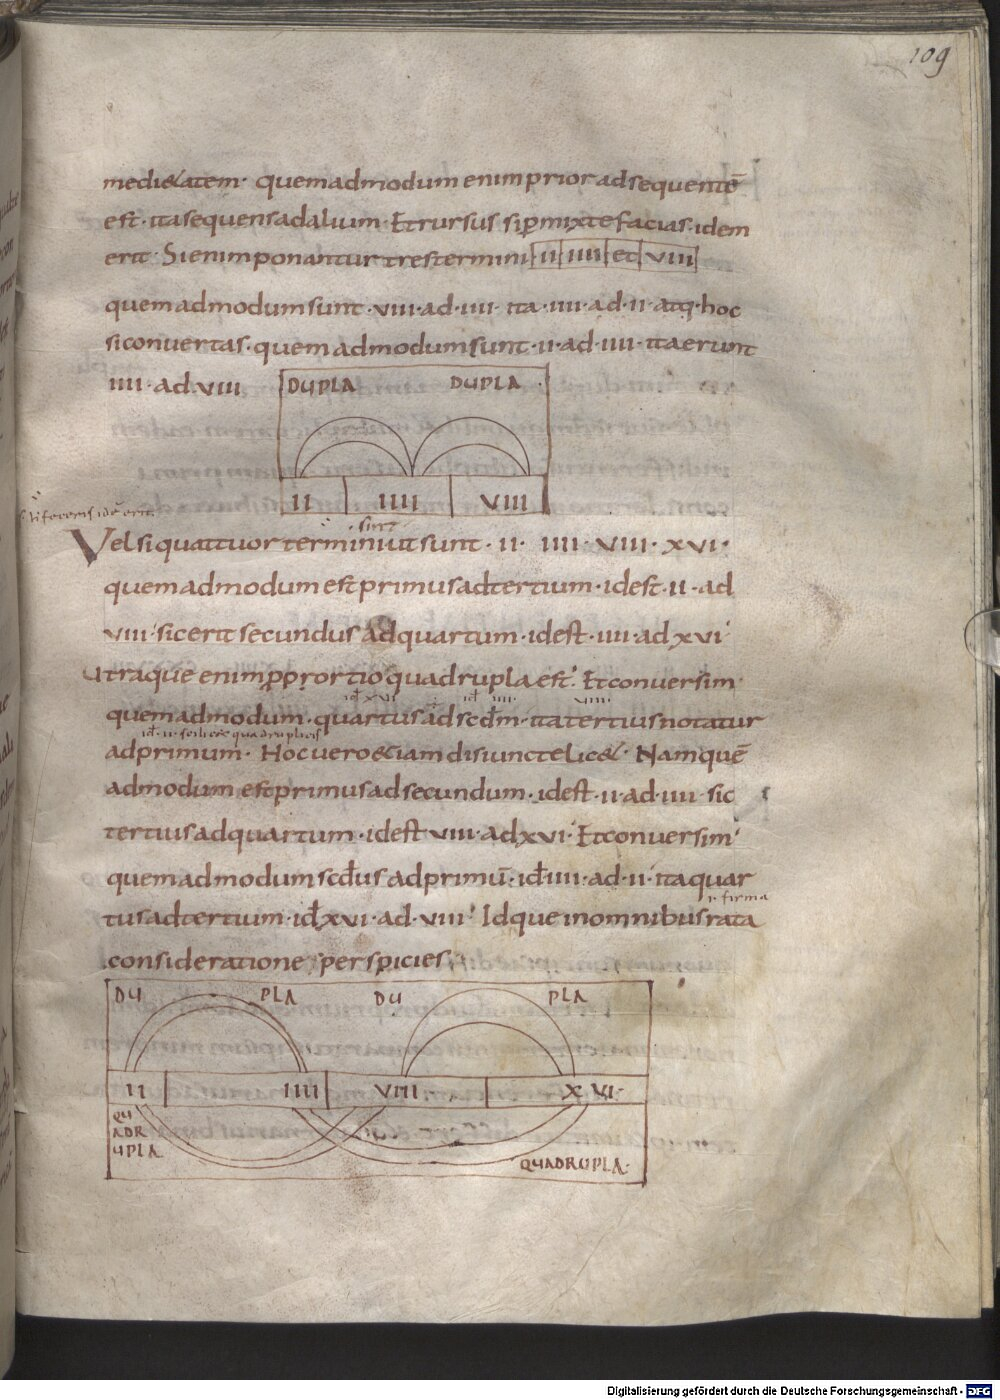 109
medi&atem · quemadmodum enim prior ad sequentē
est · ita sequens ad alium · Et rursus si p̱mixte facias · idem
erit · Si enim ponantur tres termini II IIII et VIII
quemadmodum sunt · VIII · ad · IIII · ita · IIII · ad · II · atq · hoc
si convertas · quemadmodum sunt · II · ad · IIII · ita erunt
IIII · ad VIII
DUPLA DUPLA
II IIII VIII
sint
Vel si quattuor termini ut sunt · II · IIII · VIII · XVI ·
quemadmodum est primus ad tertium · idest · II · ad
VIII · sic erit secundus ad quartum · idest · IIII · ad XVI ·
utraque enim proportio quadrupla est · Et conversim ·
id ÷ XVI id IIII VIII
quemadmodum · quartus ad scdm̄ · ita tertius notatur
ad primum · Hoc vero &iam disiuncte lic& · Nam quē
admodum est primus ad secundum · idest · II · ad · IIII · sic
tertius ad quartum · idest VIII · ad XVI · Et conversim ·
quemadmodum scdus ad primū · id IIII · ad · II · ita quar
firma
tus ad tertium · id XVI · ad · VIII · Idque in omnibus rata
consideratione perspicies ·
DU PLA DU PLA
II IIII VIII XVI ·
QU
ADR
UPLA
QUADRUPLA ·
Digitalisierung gefördert durch die Deutsche Forschungsgemeinschaft - DFG